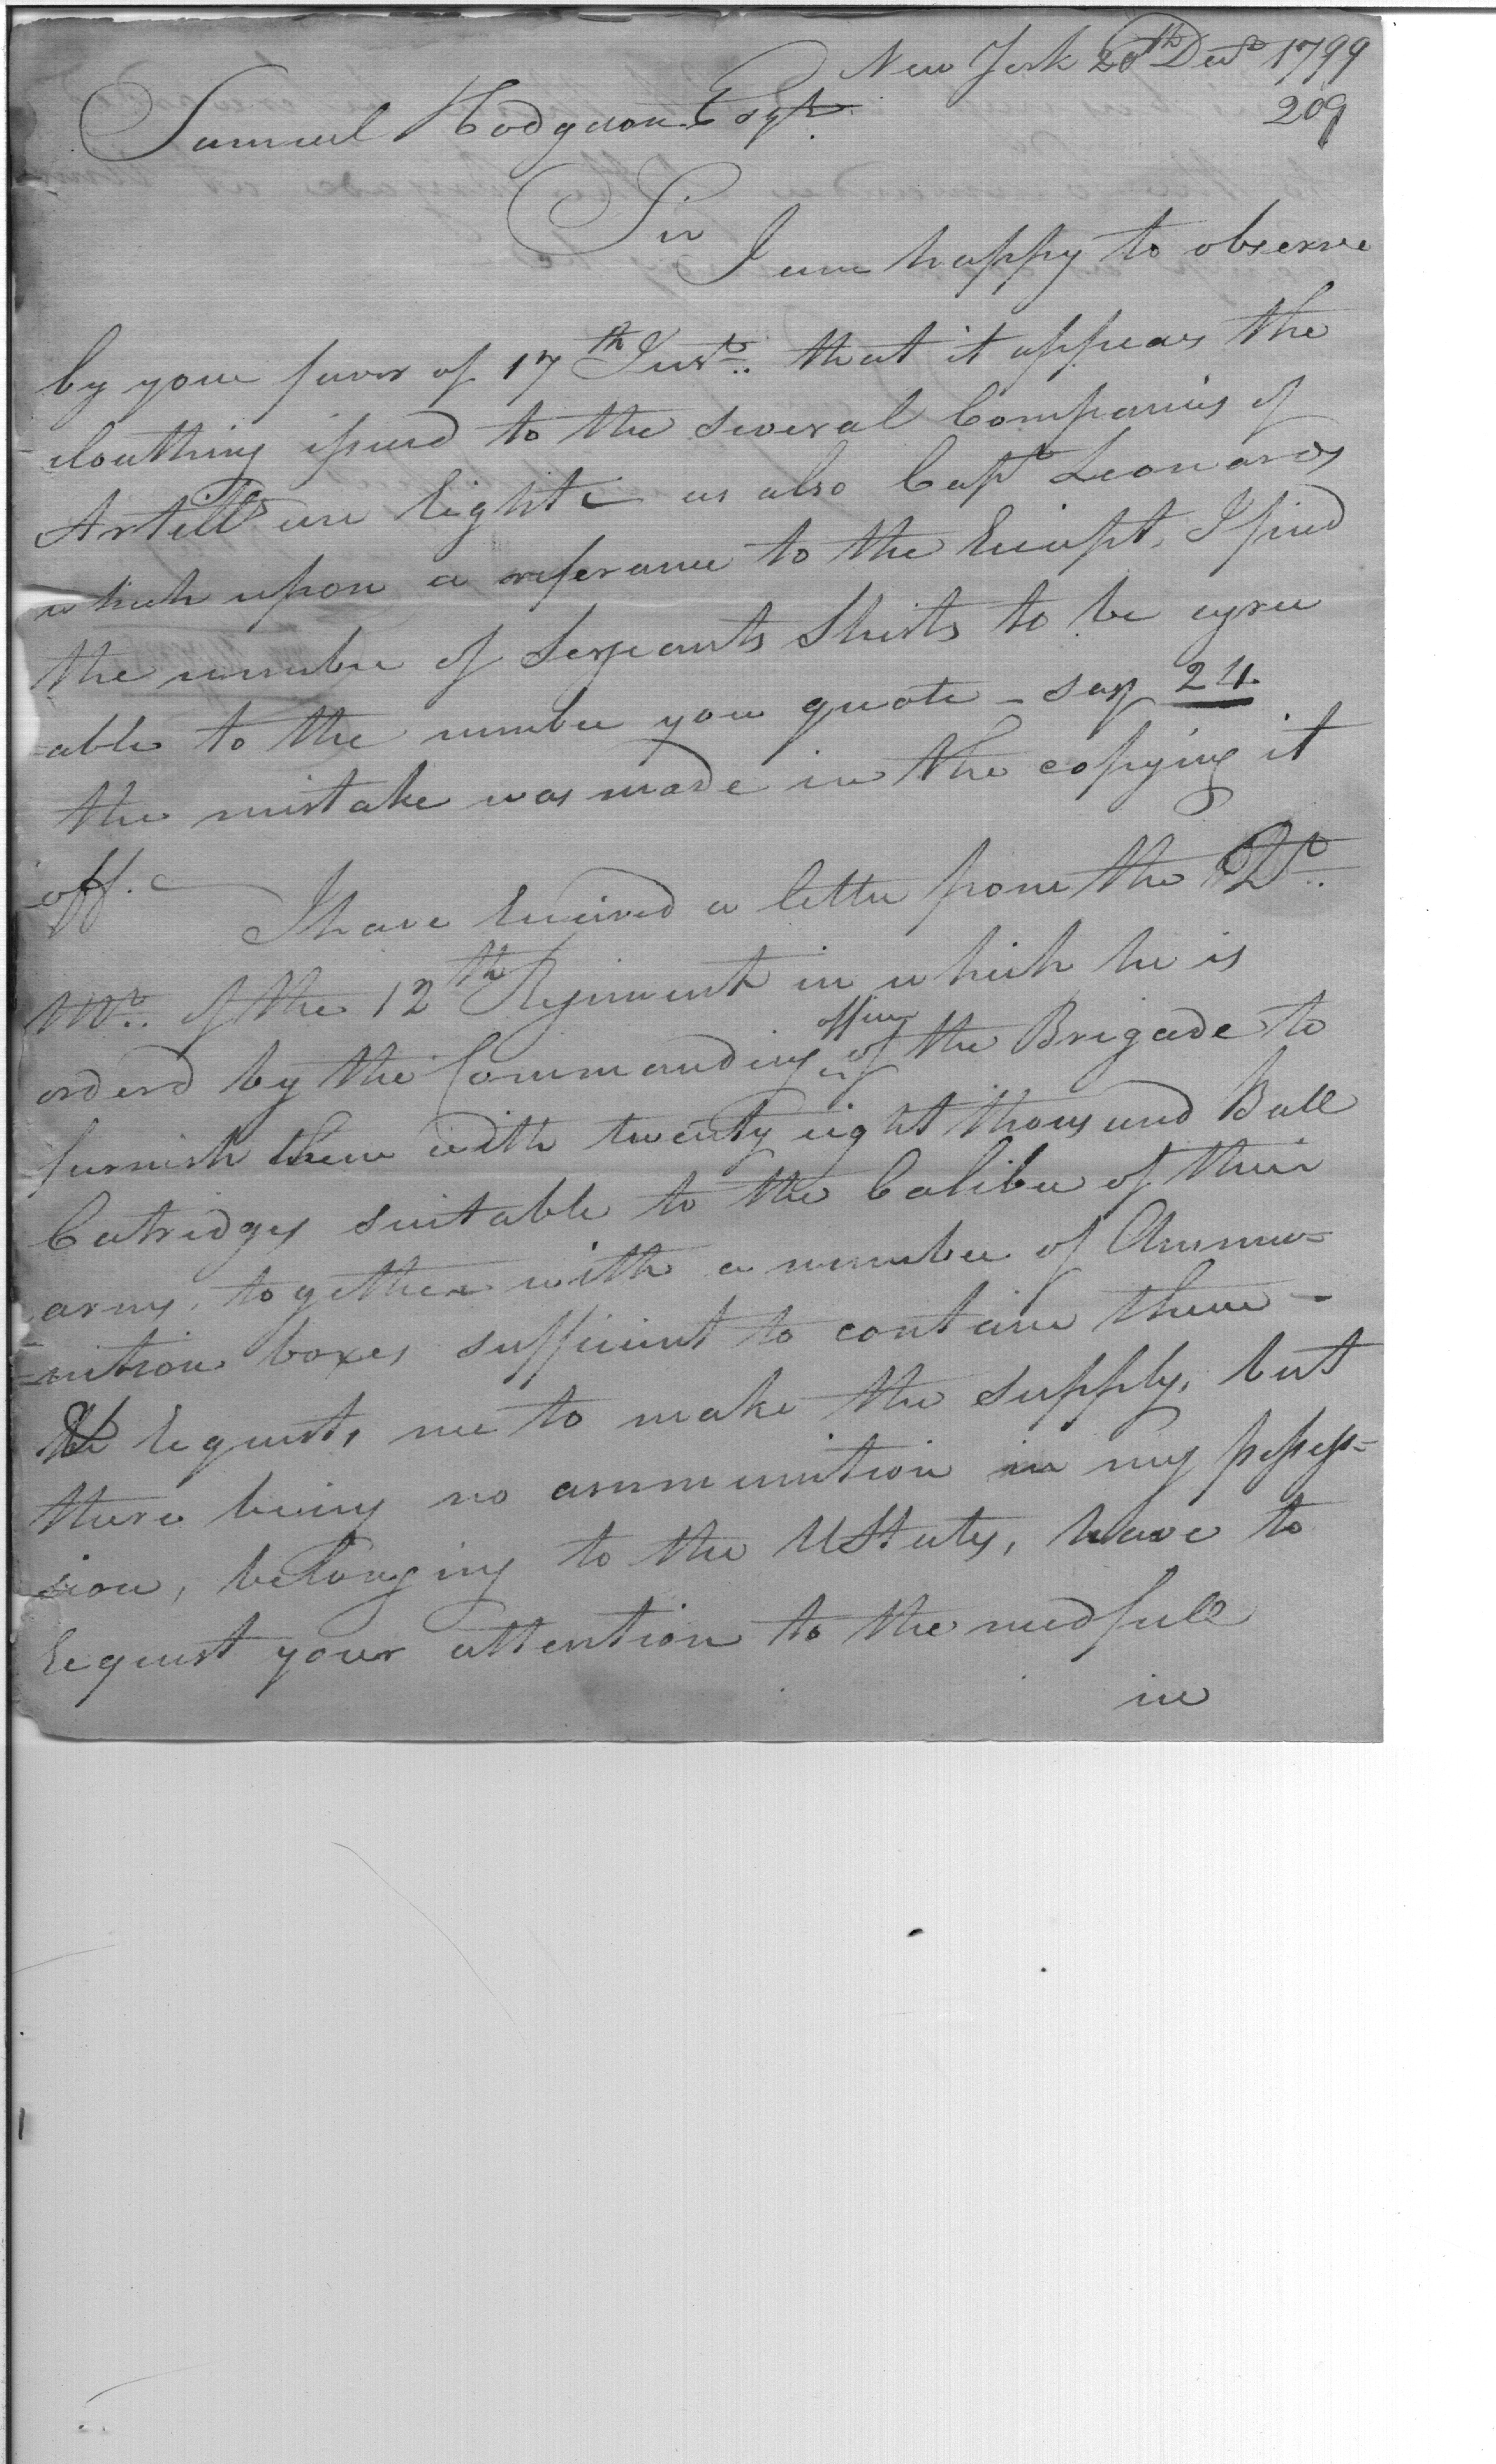 New York 20th Decr 1799
209
Samuel Hodgdon Esqr
Sir
I am happy to observe
by your favor of 17th Inst. that it appears the
cloathing issued to the several Companies of
Artilly are right as also Capt Leonards
which upon a referance to the Reciept, I find
the number of Serjeants Shirts to be agree
=able to the number you quote - say 24.
the mistake was made in the copying it
off.
I have received a letter from the Qr.
Mr. of the 12th Regiment in which he is
orderd by the Commanding officer of the Brigade to
furnish them with twenty eight thousand Ball
Catridges suitable to the Calibre of their
arms, together with a number of Ammu=
=nition boxes sufficient to contain them -
He requests, me to make the supply, but
there being no ammunition in my posses=
sion, belonging to the UStates, have to
request your attention to the needfull
in